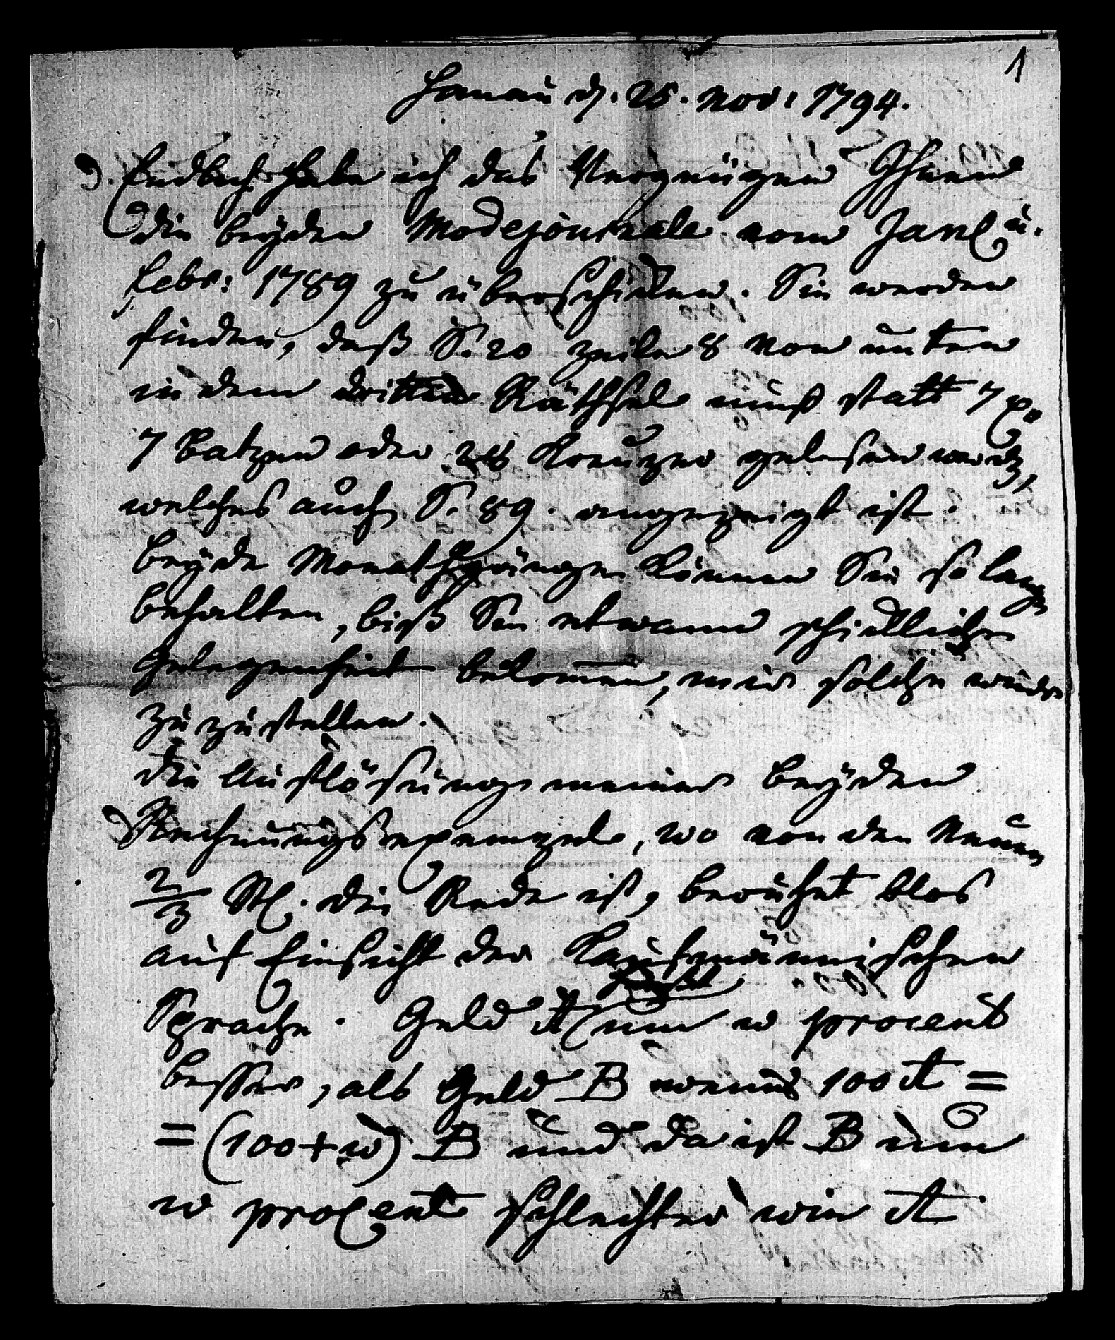 1
Hanau d. 25. Nov: 1794.
Endlich habe ich das Vergnügen Ihnen
die beyden Modejournäle vom Jan. u.
Febr: 1789 zu überschicken. Sie werden
finden, daß S. 20 Zeile 8 von unten
in dem dritten Räthsel muß statt 7
7 Batzen oder 28 Kreuzer gelesen werden,
welches auch S. 89. angezeigt ist.
Beyde Monathsgänge können Sie so lange
behalten, biß Sie etwann schickliche
Gelegenheit bekommen, mir solche wieder
zuzustellen.
Die Auflösung meiner beyden
Rechnungsexempel, wo von den Neuen
2/3 St. die Rede ist, beruhet blos
auf Einsicht der Kaufmännischen
Sprache. Geld A heißt um w procent
besser, als Geld B wenns 100 A =
= (100+w) B und da ist B um
w procent schlechter wie A